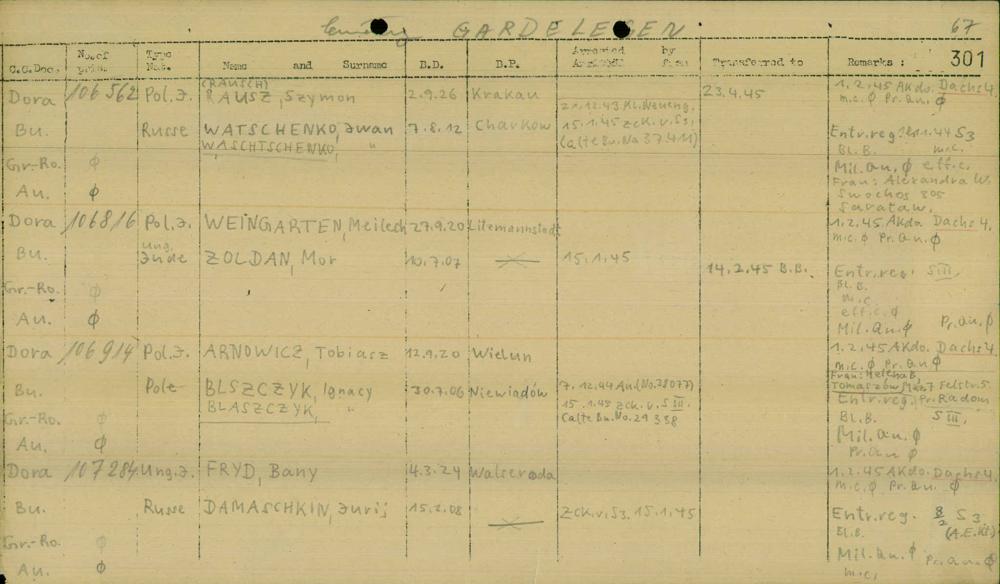 GARDELEGEN 67
C.C.Doc. No. of Type Nat. Name and Surname B.D. B.P. Arrested by from Transferred to Remarks : 301
Dora 106562 Pol.J. (RAUSCH) RAUSZ, Szymon 2.9.26 Krakau 23.4.45 1.2.45 AKdo. Dachs 4.
m.c. ϕ Pr.au. ϕ
21.12.43 Kl.Neueng.
Bu. Russe WATSCHENKO, Iwan 7.8.12 Charkow 15.1.45 zck.v.S3, Entr.reg. S3
WASCHTSCHENKO, " (alte Bu.No 37411) Bl.B. m.c.
Gr.-Ro. ϕ Mil.au. ϕ eff.c.
Au. ϕ Frau: Alexandra W.
Swochos 305
Saratow.
Dora 106816 Pol.J. WEINGARTEN, Meilech 27.9.20 Litzmannstadt 1.2.45 AKdo. Dachs 4.
m.c. ϕ Pr.au. ϕ
Bu. Ung. Jude ZOLDAN, Mor 10.7.07 15.1.45 14.2.45 B.B. Entr.reg. SIII.
Gr.-Ro. ϕ Bl.B.
m.c.
Au. ϕ eff.c. ϕ
Mil.au. ϕ Pr.au. ϕ
Dora 106914 Pol.J. ARNOWICZ, Tobiasz 12.9.20 Wielun 1.2.45 AKdo. Dachs 4.
m.c. ϕ Pr.au. ϕ
Frau: Helena B.
Bu. Pole BLSZCZYK, Ignacy 30.7.06 Niewiadów 7.12.44 Au.(No.28077) Tomaszów Maz. Felstr. 5.
BLASZCZYK, " 15.1.45 zck.v.SIII. Entr.reg. Pr.Radom
Gr.-Ro. ϕ (alte Bu.No. 29338 Bl.B. SIII,
Au. ϕ Mil.au. ϕ
Pr.au. ϕ
Dora 107284 Ung.J. FRYD, Bany 4.3.24 Walseroda 1.2.45 AKdo. Dachs 4.
m.c. ϕ Pr.au. ϕ
Bu. Russe DAMASCHKIN, Jurij 15.2.08 zck.v.S3. 15.1.45 Entr.reg. 8/2 S3
Bl.B. (A.E.Hf.)
Gr.-Ro. ϕ Mil.au. ϕ Pr.au. ϕ
Au. ϕ m.c.